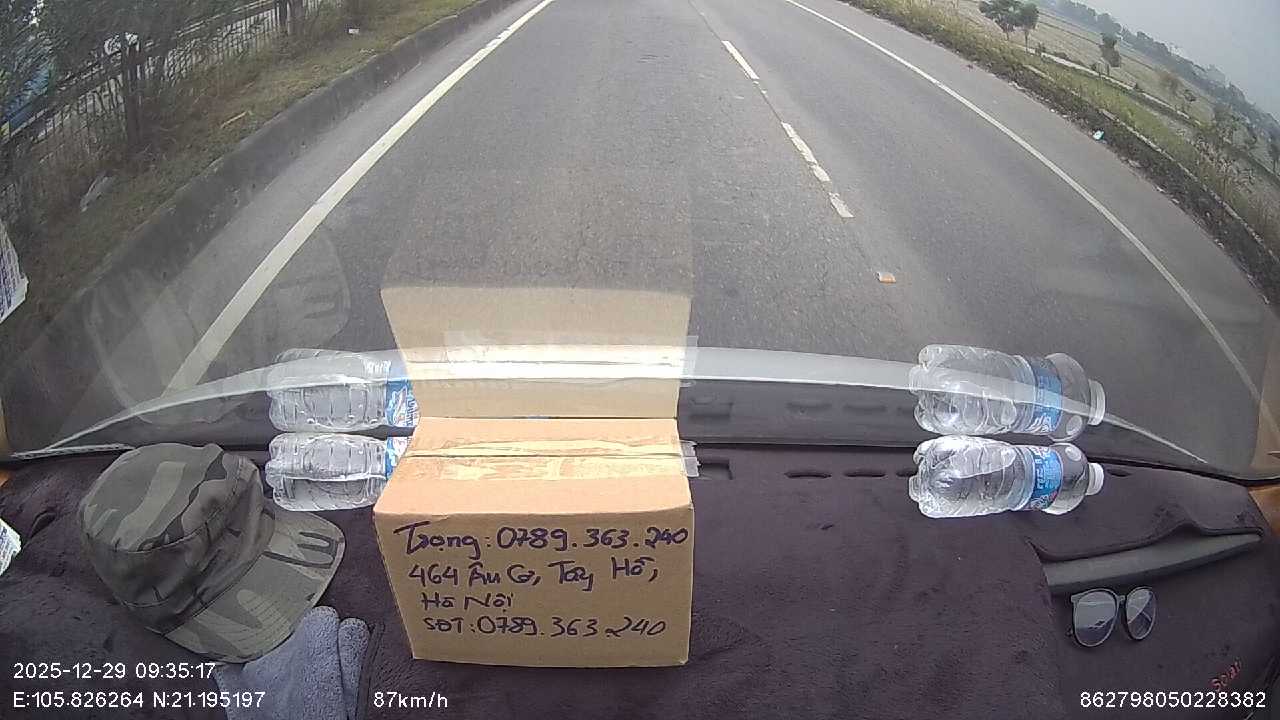 Trọng: 0789.363.240
464 Âu Cơ, Tây Hồ,
Hà Nội
SĐT: 0789.363.240
2025-12-29 09:35:17
E:105.826264 N:21.195197
87km/h
862798050228382